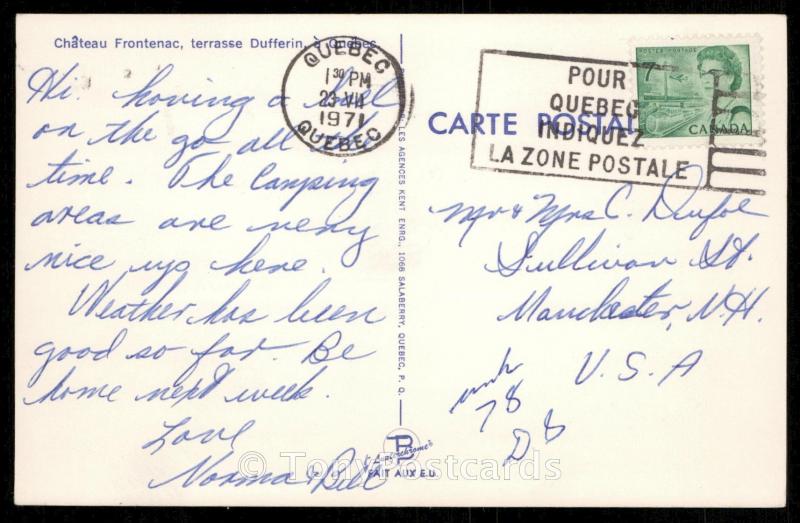 Château Frontenac, terrasse Dufferin, à Québec
Hi. having a ball
on the go all the
time. The camping
areas are very
nice up here.
Weather has been
good so far. Be
home next week.
Love
Norma & Bill
QUEBEC
1 30 PM
23 VII
1971
QUEBEC
LES AGENCES KENT ENRG., 1066 SALABERRY, QUEBEC, P. Q.
FAIT AUX E.U.
CARTE POSTALE
POUR
QUEBEC
INDIQUEZ
LA ZONE POSTALE
7
POSTES POSTAGE
CANADA
Mr & Mrs C.
Sullivan St.
Manchester, N.H.
U.S.A
78
D8
© TonyPostcards